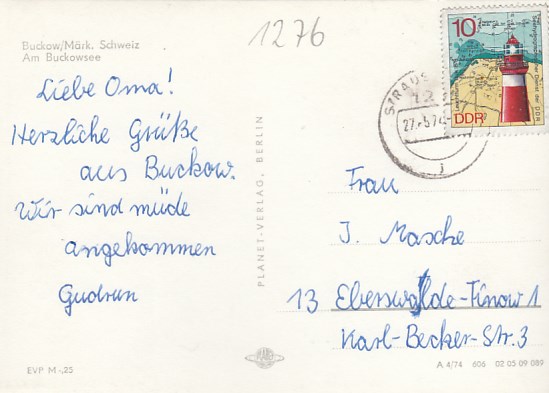 Buckow/Märk. Schweiz
Am Buckowsee
1276
Liebe Oma!
Herzliche Grüße
aus Buckow.
Wir sind müde
angekommen
Gudrun
EVP M -,25
PLANET-VERLAG, BERLIN
10
DDR
STRAUS
27.-5.74
Frau
J. Masche
13 Eberswalde-Finow 1
Karl-Becker-Str. 3
A 4/74 606 02 05 09 089